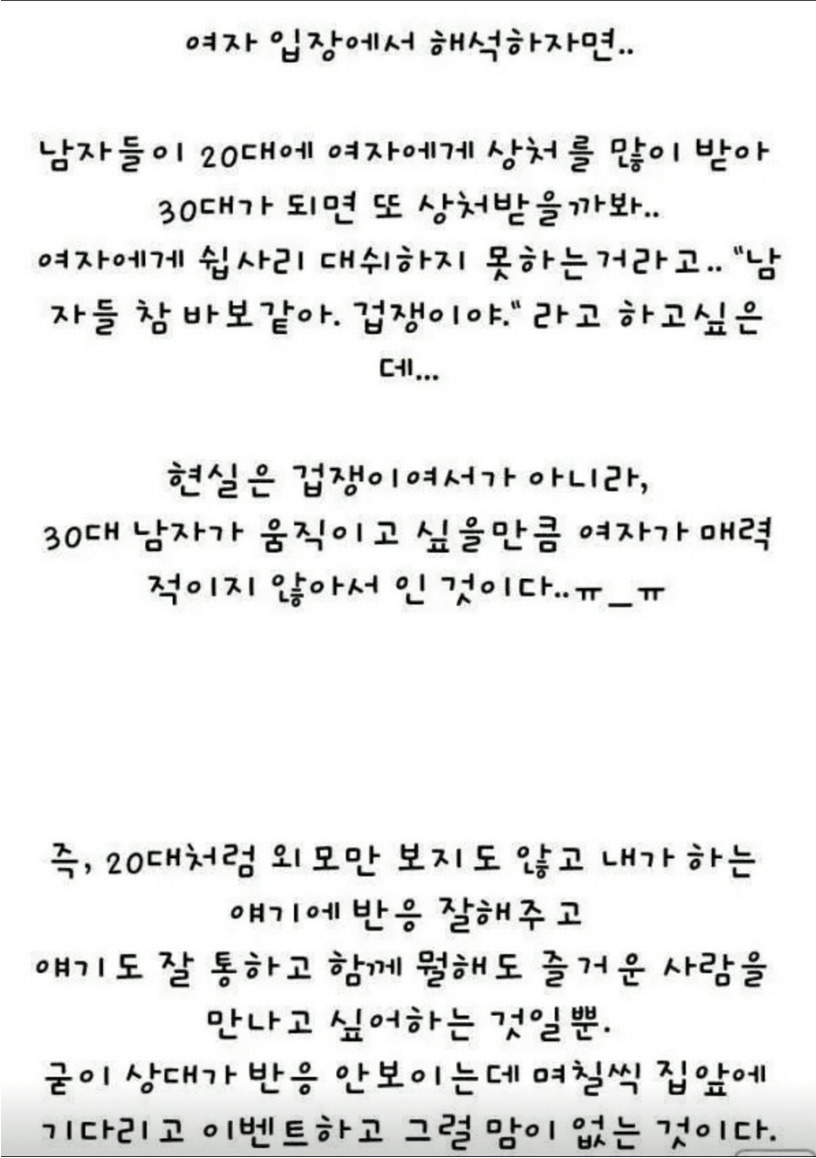 여자 입장에서 해석하자면..
남자들이 20대에 여자에게 상처를 많이 받아
30대가 되면 또 상처받을까봐..
여자에게 쉽사리 대쉬하지 못하는거라고.. "남
자들 참 바보같아. 겁쟁이야." 라고 하고싶은
데...
현실은 겁쟁이여서가 아니라,
30대 남자가 움직이고 싶을만큼 여자가 매력
적이지 않아서 인 것이다..ㅠ_ㅠ
즉, 20대처럼 외모만 보지도 않고 내가 하는
얘기에 반응 잘해주고
얘기도 잘 통하고 함께 뭘해도 즐거운 사람을
만나고 싶어하는 것일뿐.
굳이 상대가 반응 안보이는데 며칠씩 집앞에
기다리고 이벤트하고 그럴 맘이 없는 것이다.